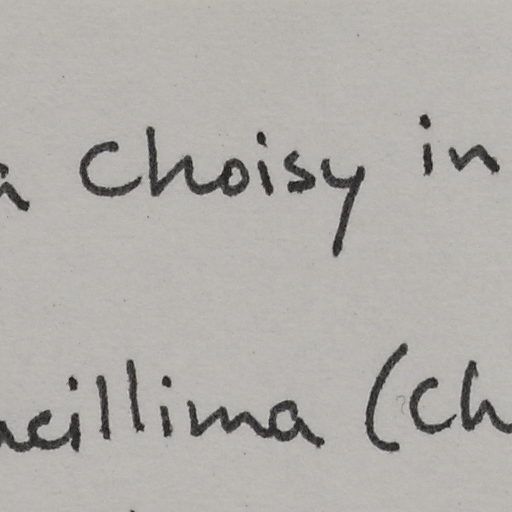 a Choisy in
acillima (Ch